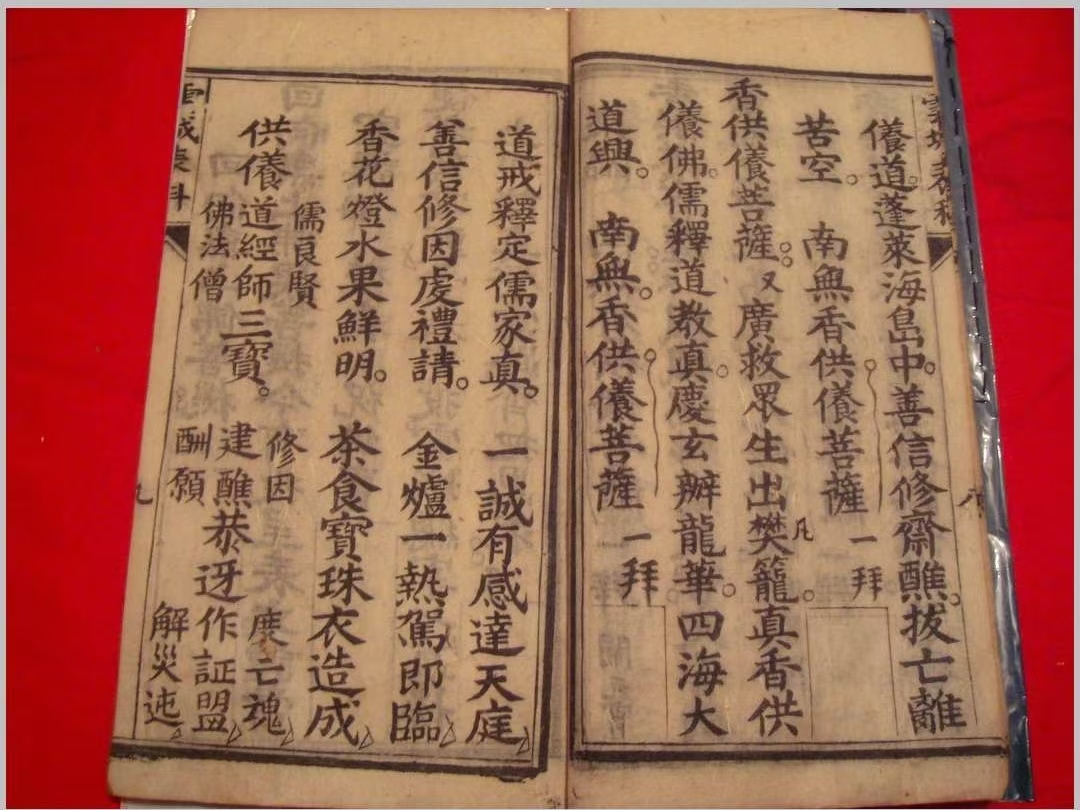 養道蓬萊海島中。善信修齋醮。拔亡離
苦空。南無香供養菩薩 一拜
香供養菩薩。。又廣救眾生出樊籠。真香供
凡
養佛。儒釋道教真。慶玄辧龍華。四海大
道興。南無。香供養菩薩 一拜
道戒釋定儒家真。一誠有感達天庭
善信修因虔禮請。金爐一熱駕即臨
香花燈水果鮮明。茶食寶珠衣造成
供養
儒良賢
道經師
佛法僧
三寶。
修因
建醮
酬願
恭迓
度亡魂
作証盟
解災迍